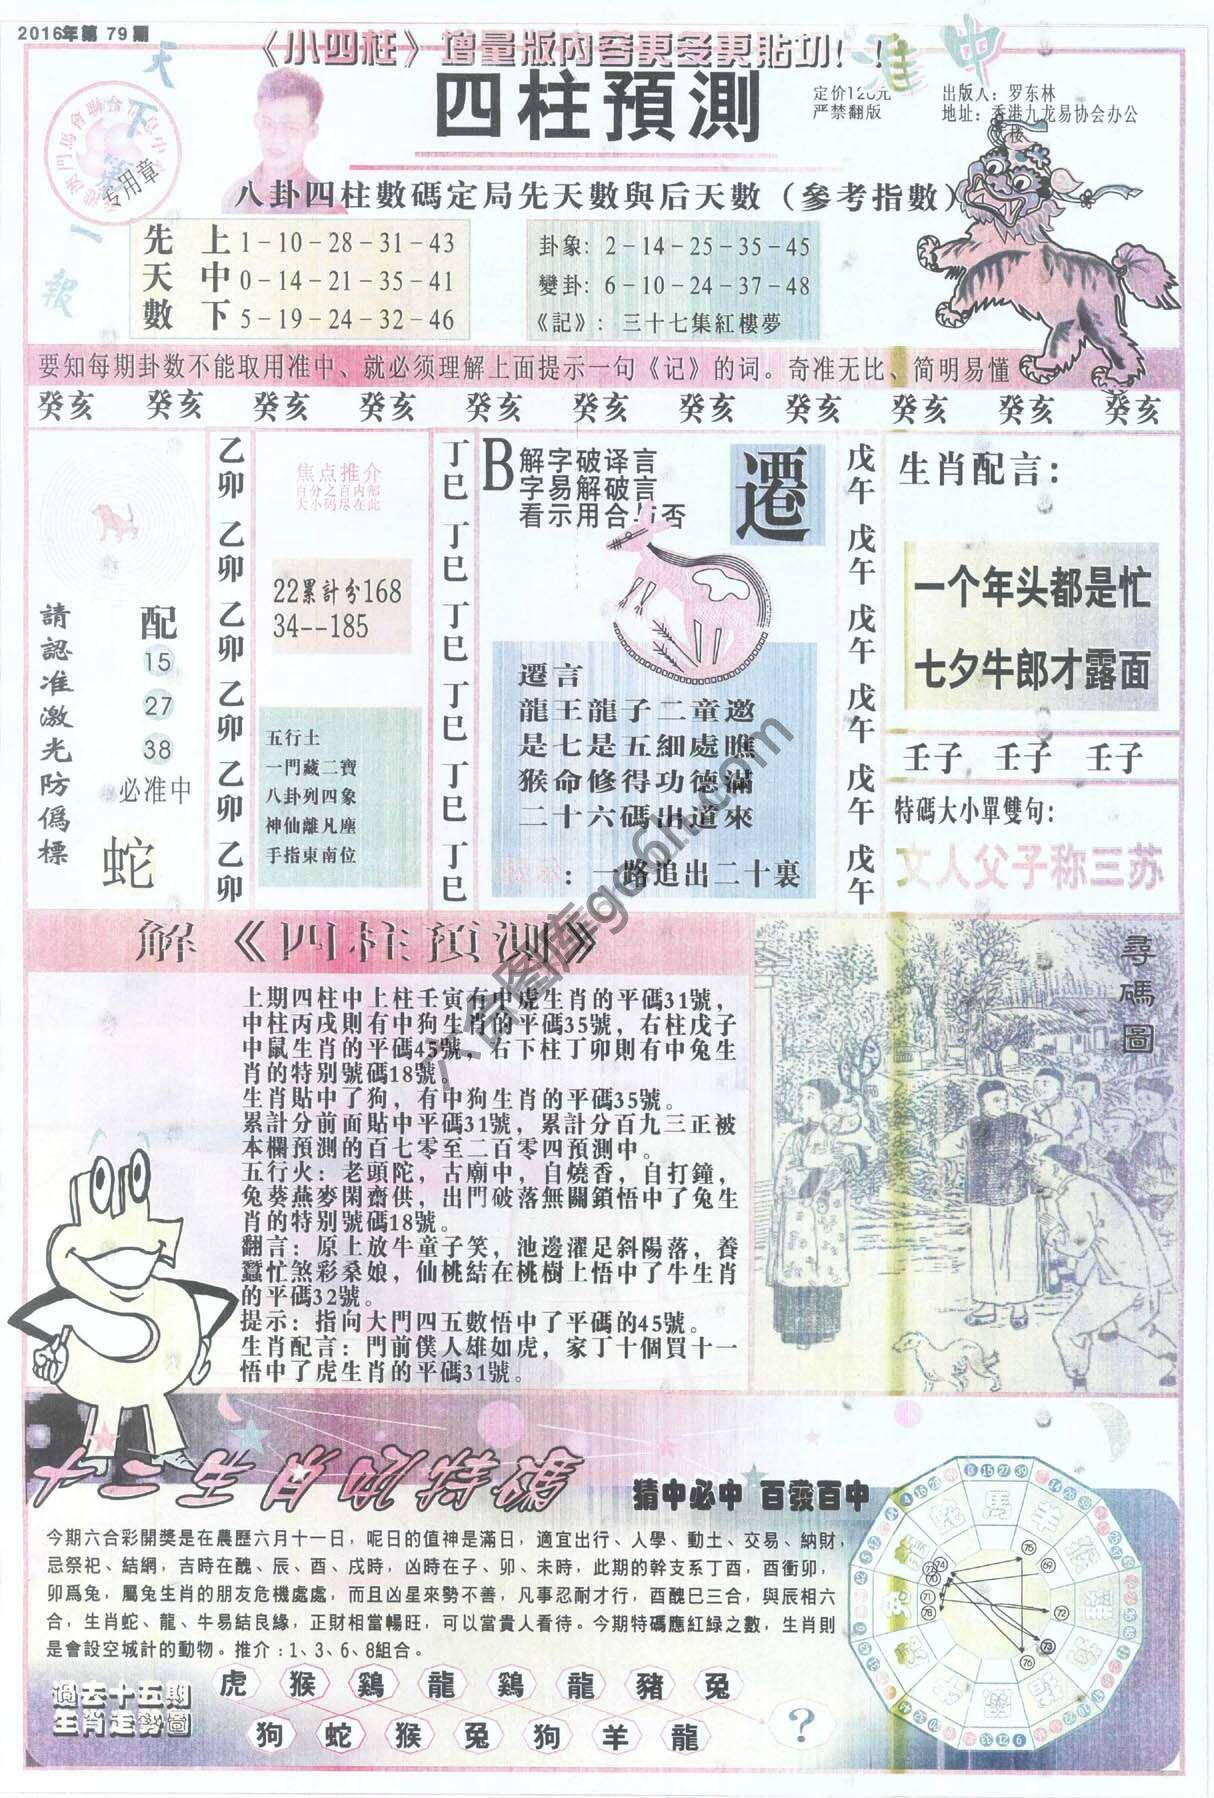 2016年第79期
《小四柱》增量版内容更多更貼切！！
准中
天下第一報
四柱預測
定价120元
严禁翻版
出版人：罗东林
地址：香港九龙易协会办公楼
专用章
八卦四柱數碼定局先天數與后天數（參考指數）
先天數
上 1-10-28-31-43
中 0-14-21-35-41
下 5-19-24-32-46
卦象：2-14-25-35-45
變卦：6-10-24-37-48
《記》：三十七集紅樓夢
要知每期卦数不能取用准中、就必须理解上面提示一句《记》的词。奇准无比、简明易懂
癸亥 癸亥 癸亥 癸亥 癸亥 癸亥 癸亥 癸亥 癸亥 癸亥 癸亥
請認准激光防僞標
配
15
27
38
必准中
蛇
乙卯 乙卯 乙卯 乙卯 乙卯 乙卯
焦点推介
百分之百内部
大小码尽在此
22累計分168
34--185
五行土
一門藏二寶
八卦列四象
神仙離凡塵
手指東南位
丁巳 丁巳 丁巳 丁巳 丁巳 丁巳
B
解字破译言
字易解破言
看示用合与否
遷
遷言
龍王龍子二童邀
是七是五細處瞧
猴命修得功德滿
二十六碼出道來
：一路追出二十裏
戊午 戊午 戊午 戊午 戊午 戊午
生肖配言：
一个年头都是忙
七夕牛郎才露面
壬子 壬子 壬子
特碼大小單雙句：
文人父子称三苏
解《四柱預測》
上期四柱中上柱壬寅有中虎生肖的平碼31號，
中柱丙戌則有中狗生肖的平碼35號，右柱戊子
中鼠生肖的平碼45號，右下柱丁卯則有中兔生
肖的特别號碼18號。
生肖貼中了狗，有中狗生肖的平碼35號。
累計分前面貼中平碼31號，累計分百九三正被
本欄預測的百七零至二百零四預測中。
五行火：老頭陀，古廟中，自燒香，自打鐘，
兔葵燕麥閑齋供，出門破落無關鎖悟中了兔生
肖的特别號碼18號。
翻言：原上放牛童子笑，池邊濯足斜陽落，養
蠶忙煞彩桑娘，仙桃結在桃樹上悟中了牛生肖
的平碼32號。
提示：指向大門四五數悟中了平碼的45號。
生肖配言：門前僕人雄如虎，家丁十個買十一
悟中了虎生肖的平碼31號。
尋碼圖
猜中必中 百發百中
今期六合彩開獎是在農歷六月十一日，呢日的值神是滿日，適宜出行、人學、動土、交易、納財，
忌祭祀、結網，吉時在醜、辰、酉、戌時，凶時在子、卯、未時，此期的幹支系丁酉，酉衝卯，
卯爲兔，屬兔生肖的朋友危機處處，而且凶星來勢不善，凡事忍耐才行，酉醜巳三合，與辰相六
合，生肖蛇、龍、牛易結良緣，正財相當暢旺，可以當貴人看待。今期特碼應紅綠之數，生肖則
是會設空城計的動物。推介：1、3、6、8組合。
過去十五期
生肖走勢圖
虎 猴 鷄 龍 鷄 龍 豬 兔
狗 蛇 猴 兔 狗 羊 龍 ？
六合图库go6h.com